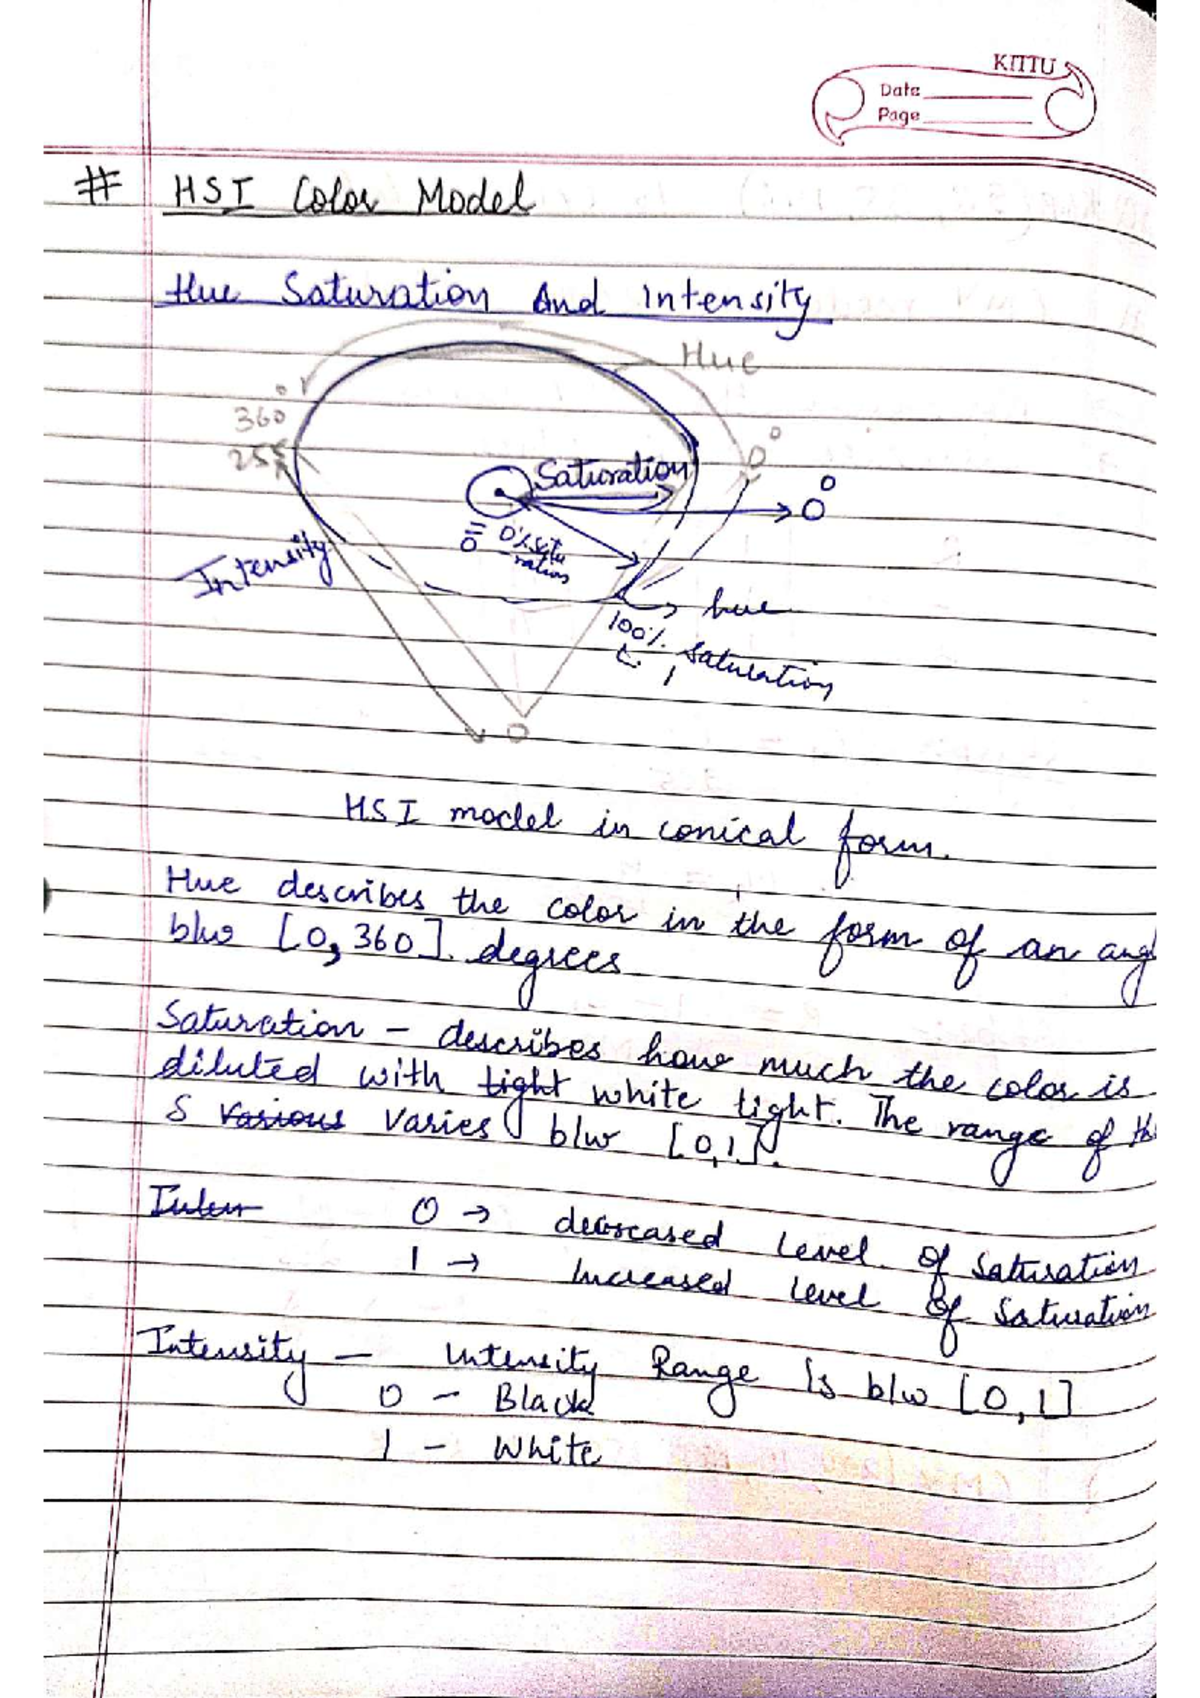 KITTU
Date
Page
# HSI Color Model
Hue Saturation And Intensity
Hue
360°
255
0°
Saturation
0°
= 0
0% satu
ration
Intensity
hue
100% Saturation
0
HSI model in conical form.
Hue describes the color in the form of an angl
b/w [0, 360]. degrees
Saturation – describes how much the color is
diluted with tight white light. The range of th
S Various Varies b/w [0,1].
Inten 0 → decreased Level of Saturation
1 → Increased Level of Saturation
Intensity – Intensity Range is b/w [0,1]
0 – Black
1 – White